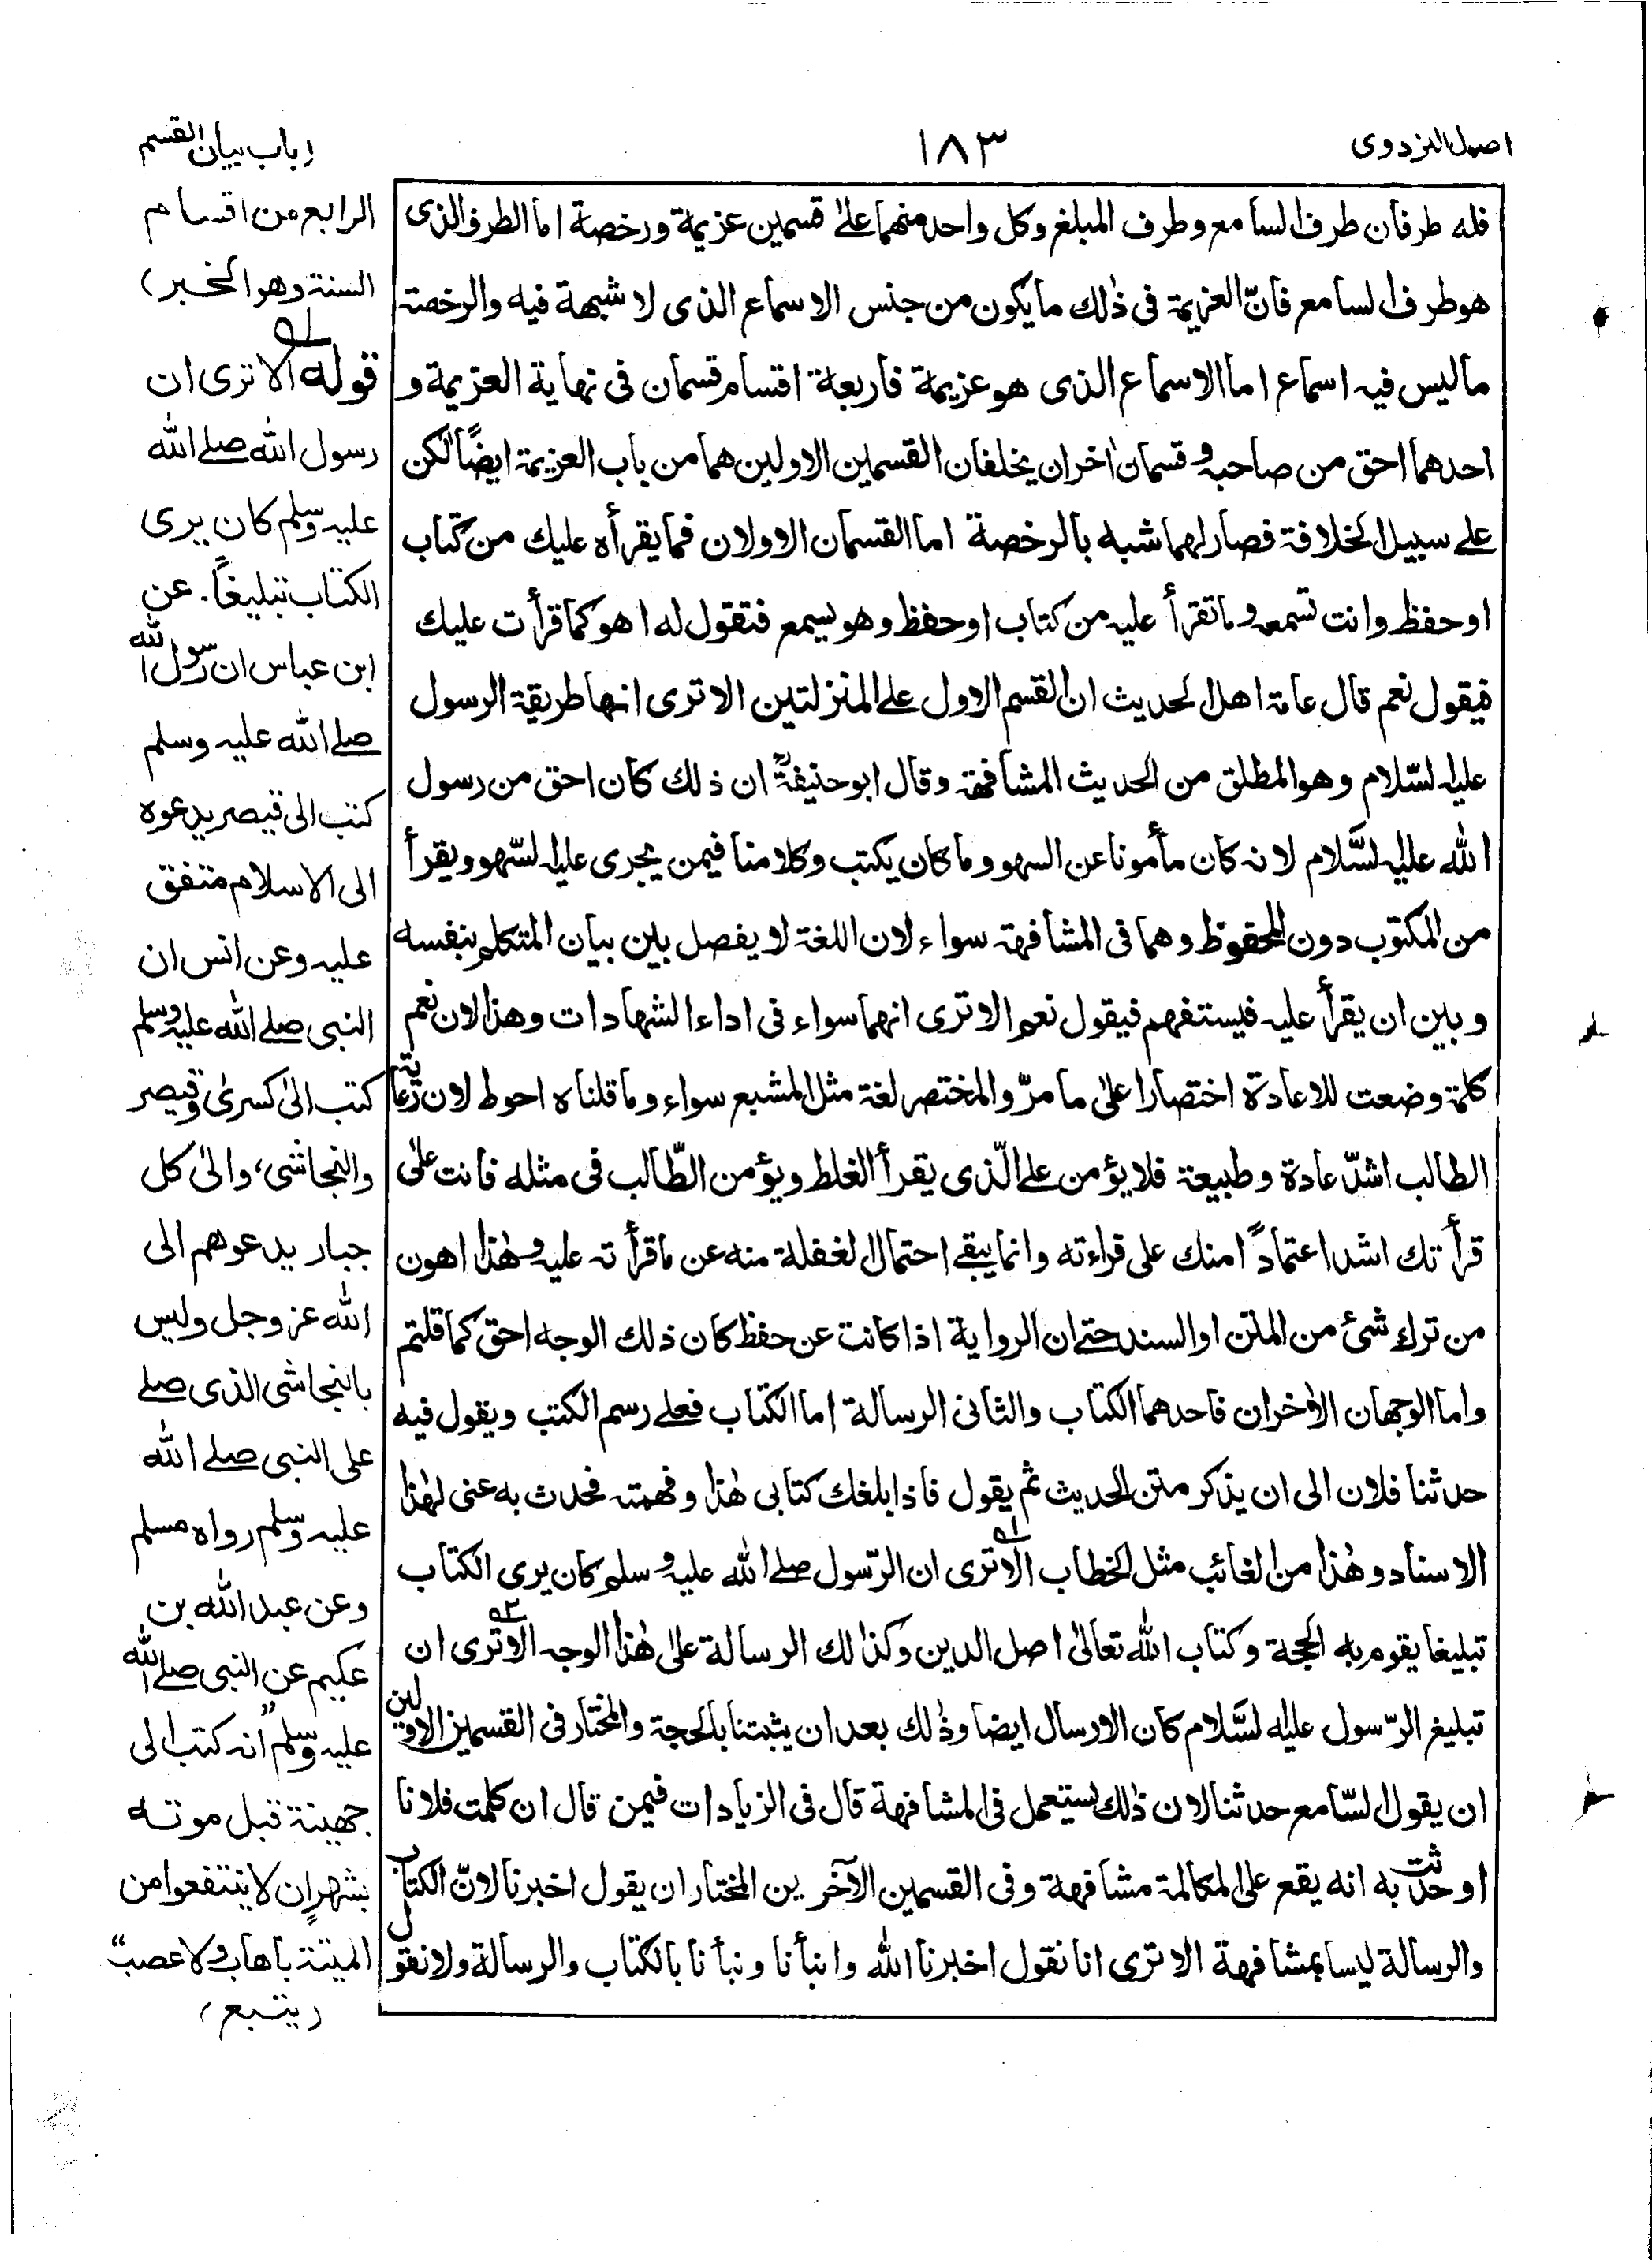 اصول البزدوی
۱۸۳
(باب بیان القسم
فله طرفان طرف السامع وطرف المبلغ وکل واحد منهما علیٰ قسمین عزیمة ورخصة اما الطرف الذی
هو طرف السامع فانّ العزیمة فی ذٰلك ما یکون من جنس الاسماع الذی لا شبهة فیه والرخصة
ما لیس فیه اسماع اما الاسماع الذی هو عزیمة فاربعة اقسام قسمان فی نهایة العزیمة و
احدهما احق من صاحبه وقسمان اٰخران یخلفان القسمین الاولین هما من باب العزیمة ایضًا لٰکن
علے سبیل الخلافة فصار لهما شبه بالرخصة اما القسمان الاولان فما یقرأه علیك من کتاب
او حفظ وانت تسمعه وما تقرأ علیه من کتاب او حفظ وهو یسمع فتقول له اهو کما قرأت علیك
فیقول نعم قال عامة اهل الحدیث ان القسم الاول علے المنزلتین الا تری انها طریقة الرسول
علیه السّلام وهو المطلق من الحدیث المشافهة وقال ابوحنیفةؒ ان ذلك کان احق من رسول
الله علیه السَّلام لانه کان مأمونا عن السهو وما کان یکتب وکلامنا فیمن یجری علیه السّهو ویقرأ
من المکتوب دون المحفوظ وهما فی المشافهة سواء لان اللغة لا یفصل بین بیان المتکلم بنفسه
وبین ان یقرأ علیه فیستفهم فیقول نعم الا تری انهما سواء فی اداء الشهادات وهذا لان نعم
کلمة وضعت للاعادة اختصارا علیٰ ما مرّ والمختصر لغة مثل المشبع سواء وما قلناه احوط لان رعایة
الطالب اشدّ عادة وطبیعة فلا یؤمن علے الّذی یقرأ الغلط ویؤمن الطّالب فی مثله فانت علیٰ
قرأتك اشد اعتمادًا منك علی قراءته وانما یبقے احتمال الغفلة منه عن ما قرأته علیه وهٰذا اهون
من ترك شئ من المتن او السند حتے ان الروایة اذا کانت عن حفظ کان ذلك الوجه احق کما قلتم
واما الوجهان الاٰخران فاحدهما الکتاب والثانی الرسالة اما الکتاب فعلے رسم الکتب ویقول فیه
حدثنا فلان الی ان یذکر متن الحدیث ثم یقول فاذا بلغك کتابی هٰذا وفهمته فحدث به عنی لهٰذا
الاسناد وهٰذا من الغائب مثل الخطاب الا تری ان الرّسول صلے الله علیه وسلم کان یری الکتاب
تبلیغا یقوم به الحجة وکتاب الله تعالیٰ اصل الدین وکذالك الرسالة علیٰ هٰذا الوجه الا تری ان
تبلیغ الرّسول علیه السَّلام کان الارسال ایضا وذٰلك بعد ان یثبتنا بالحجة والمختار فی القسمین الاولین
ان یقول السّامع حدثنا لان ذٰلك یستعمل فی المشافهة قال فی الزیادات فیمن قال ان کلمت فلانا
او حدثت به انه یقع علی المکالمة مشافهة وفی القسمین الآخرین المختار ان یقول اخبرنا لانّ الکتاب
والرسالة لیسا بمشافهة الا تری انا نقول اخبرنا الله وانبأنا ونبأنا بالکتاب والرسالة ولا نقول
الرابع من اقسام
السنة وهو الخبر)
قوله الا تری ان
رسول الله صلے الله
علیه وسلم کان یری
الکتاب تبلیغاً. عن
ابن عباس ان رسول الله
صلے الله علیه وسلم
کتب الی قیصر یدعوه
الی الاسلام متفق
علیه وعن انس ان
النبی صلے الله علیه وسلم
کتب الیٰ کسریٰ وقیصر
والنجاشی، والیٰ کل
جبار یدعوهم الی
الله عز وجل ولیس
بالنجاشی الذی صلے
علی النبی صلے الله
علیه وسلم رواه مسلم
وعن عبد الله بن
عکیم عن النبی صلے الله
علیه وسلم "انه کتب الی
جهینة قبل موته
بشهرٍ ان لا ینتفعوا من
المیتة باهاب ولا عصب"
(یتبع)